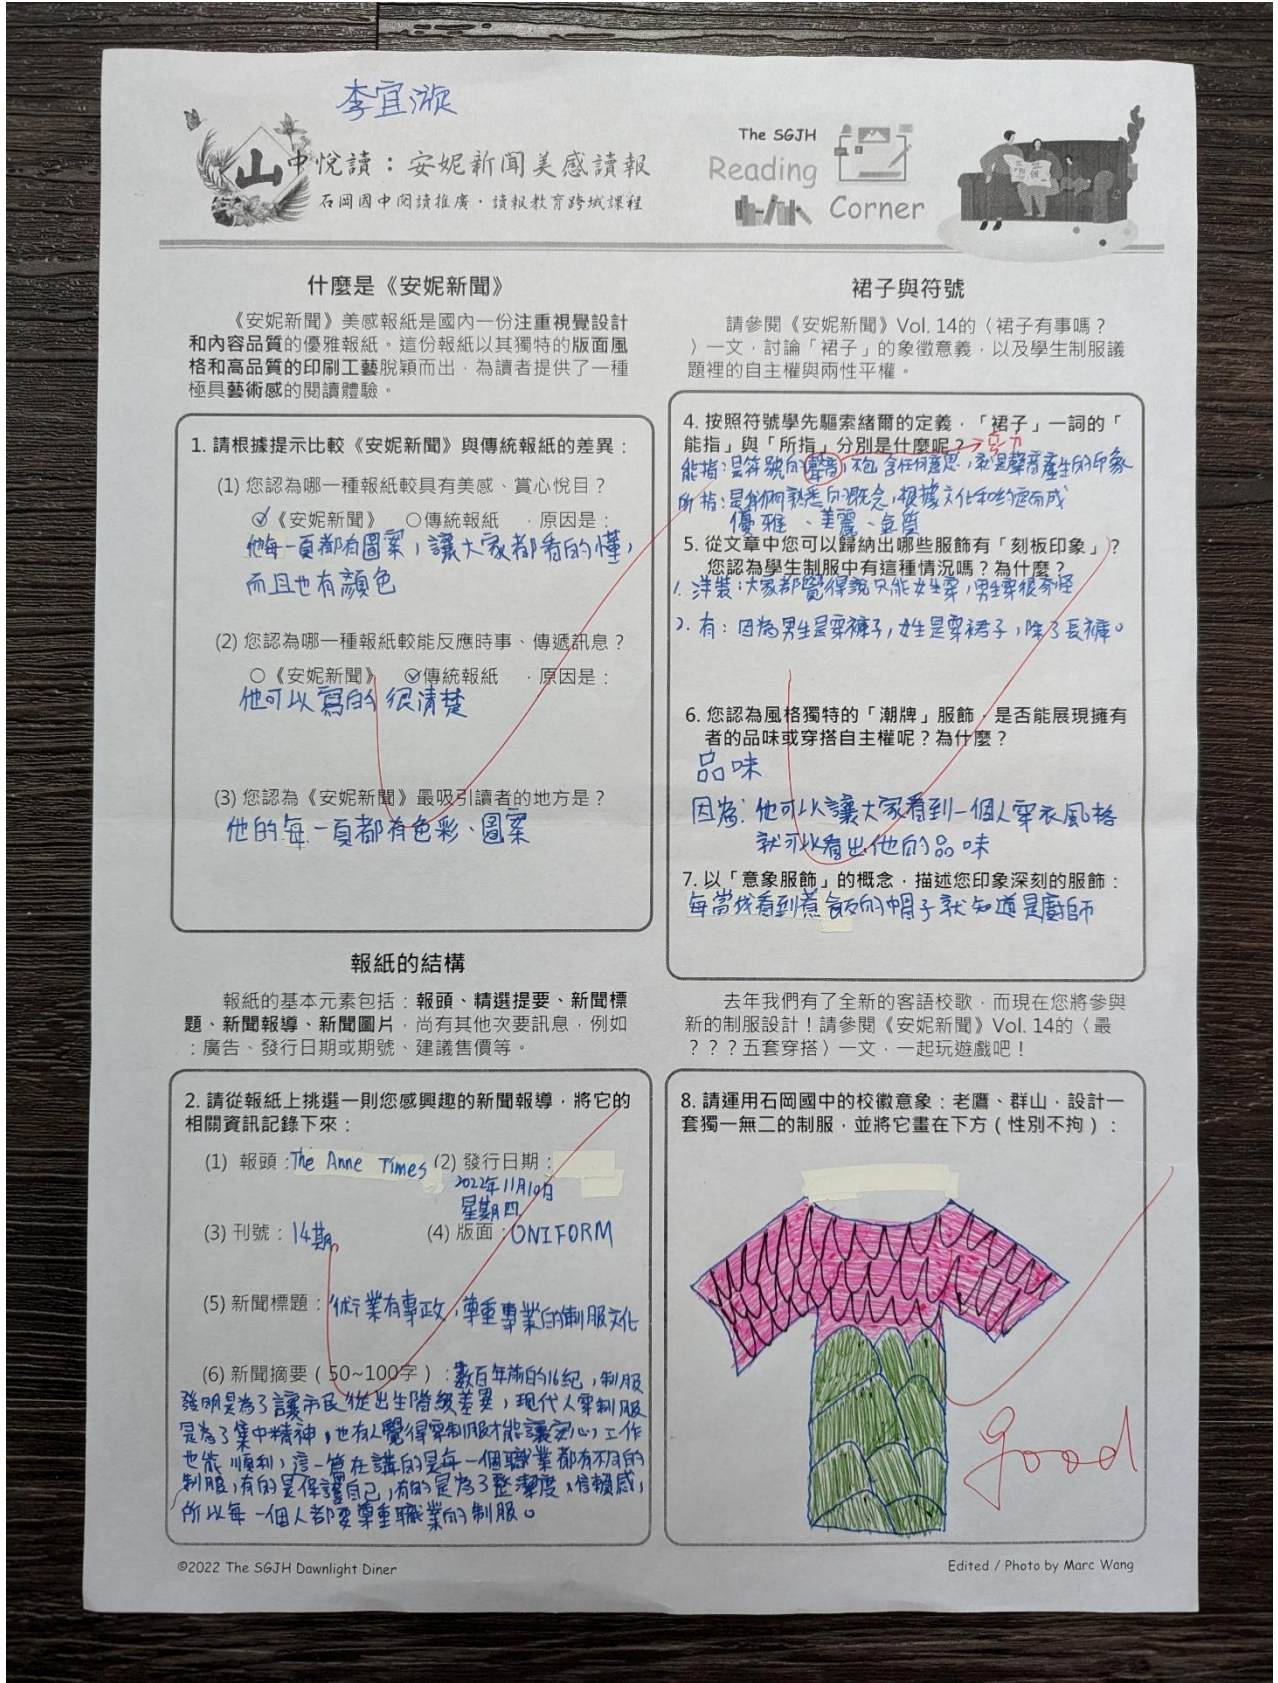 李宜漩
山中悅讀：安妮新聞美感讀報
石岡國中閱讀推廣・讀報教育跨域課程
The SGJH
Reading
Corner
什麼是《安妮新聞》
《安妮新聞》美感報紙是國內一份注重視覺設計
和內容品質的優雅報紙。這份報紙以其獨特的版面風
格和高品質的印刷工藝脫穎而出，為讀者提供了一種
極具藝術感的閱讀體驗。
1. 請根據提示比較《安妮新聞》與傳統報紙的差異：
(1) 您認為哪一種報紙較具有美感、賞心悅目？
☑《安妮新聞》 ○傳統報紙 ，原因是：
他每一頁都有圖案，讓大家都看的懂，
而且也有顏色
(2) 您認為哪一種報紙較能反應時事、傳遞訊息？
○《安妮新聞》 ☑傳統報紙 ，原因是：
他可以寫的很清楚
(3) 您認為《安妮新聞》最吸引讀者的地方是？
他的每一頁都有色彩、圖案
報紙的結構
報紙的基本元素包括：報頭、精選提要、新聞標
題、新聞報導、新聞圖片，尚有其他次要訊息，例如
：廣告、發行日期或期號、建議售價等。
2. 請從報紙上挑選一則您感興趣的新聞報導，將它的
相關資訊記錄下來：
(1) 報頭：The Anne Times (2) 發行日期：
2022年11月10日
星期四
(3) 刊號：14期 (4) 版面：UNIFORM
(5) 新聞標題：術業有專政，尊重專業的制服文化
(6) 新聞摘要（50~100字）：數百年前的16紀，制服
發明是為了讓市民從出生階級差異，現代人穿制服
是為了集中精神，也有人覺得穿制服才能讓安心，工作
也能順利，這一篇在講的是每一個職業都有不同的
制服，有的是保護自己，有的是為了整潔度、信賴感，
所以每一個人都要尊重職業的制服。
裙子與符號
請參閱《安妮新聞》Vol. 14的〈裙子有事嗎？
〉一文，討論「裙子」的象徵意義，以及學生制服議
題裡的自主權與兩性平權。
4. 按照符號學先驅索緒爾的定義，「裙子」一詞的「
能指」與「所指」分別是什麼呢？
能指：是符號的聲音，不包含任何意思，就是聲音產生的印象
所指：是我們熟悉的概念，根據文化和約定而成
優雅、美麗、氣質
5. 從文章中您可以歸納出哪些服飾有「刻板印象」？
您認為學生制服中有這種情況嗎？為什麼？
1. 洋裝：大家都覺得說只能女生穿，男生穿很奇怪
2. 有：因為男生是穿褲子，女生是穿裙子，除了長褲。
6. 您認為風格獨特的「潮牌」服飾，是否能展現擁有
者的品味或穿搭自主權呢？為什麼？
品味
因為：他可以讓大家看到一個人穿衣風格
就可以看出他的品味
7. 以「意象服飾」的概念，描述您印象深刻的服飾：
每當我看到煮飯的帽子就知道是廚師
去年我們有了全新的客語校歌，而現在您將參與
新的制服設計！請參閱《安妮新聞》Vol. 14的〈最
？？？五套穿搭〉一文，一起玩遊戲吧！
8. 請運用石岡國中的校徽意象：老鷹、群山，設計一
套獨一無二的制服，並將它畫在下方（性別不拘）：
good
©2022 The SGJH Dawnlight Diner
Edited / Photo by Marc Wang